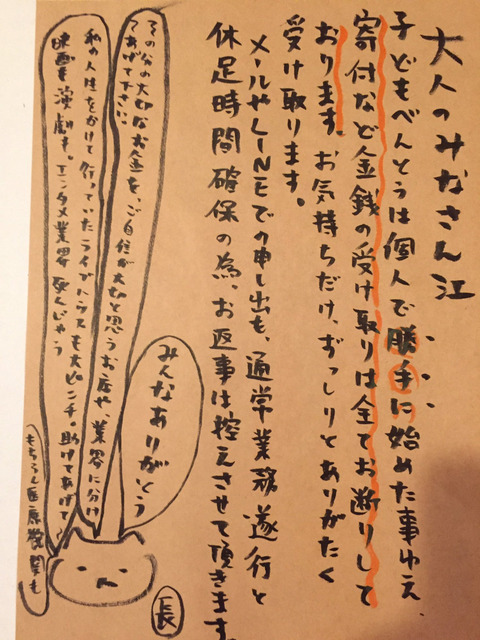 大人のみなさん江
子どもべんとうは個人で勝手に始めた事ゆえ
寄付など金銭の受け取りは全てお断りして
おります。お気持ちだけ、ぢっしりとありがたく
受け取ります。
メールやLINEでの申し出も、通常業務遂行と
休足時間確保の為、お返事は控えさせて頂きます。
みんなありがとう
そのな大切なお金を、ご自信が大切と思うお店や、業界に分け
てあげて下さい。
私の人生をかけて行っていたライブハウスも大ピンチ。助けてあげて
映画も演劇も。エンタメ業界死んじゃう
もちろん医療機関も
長